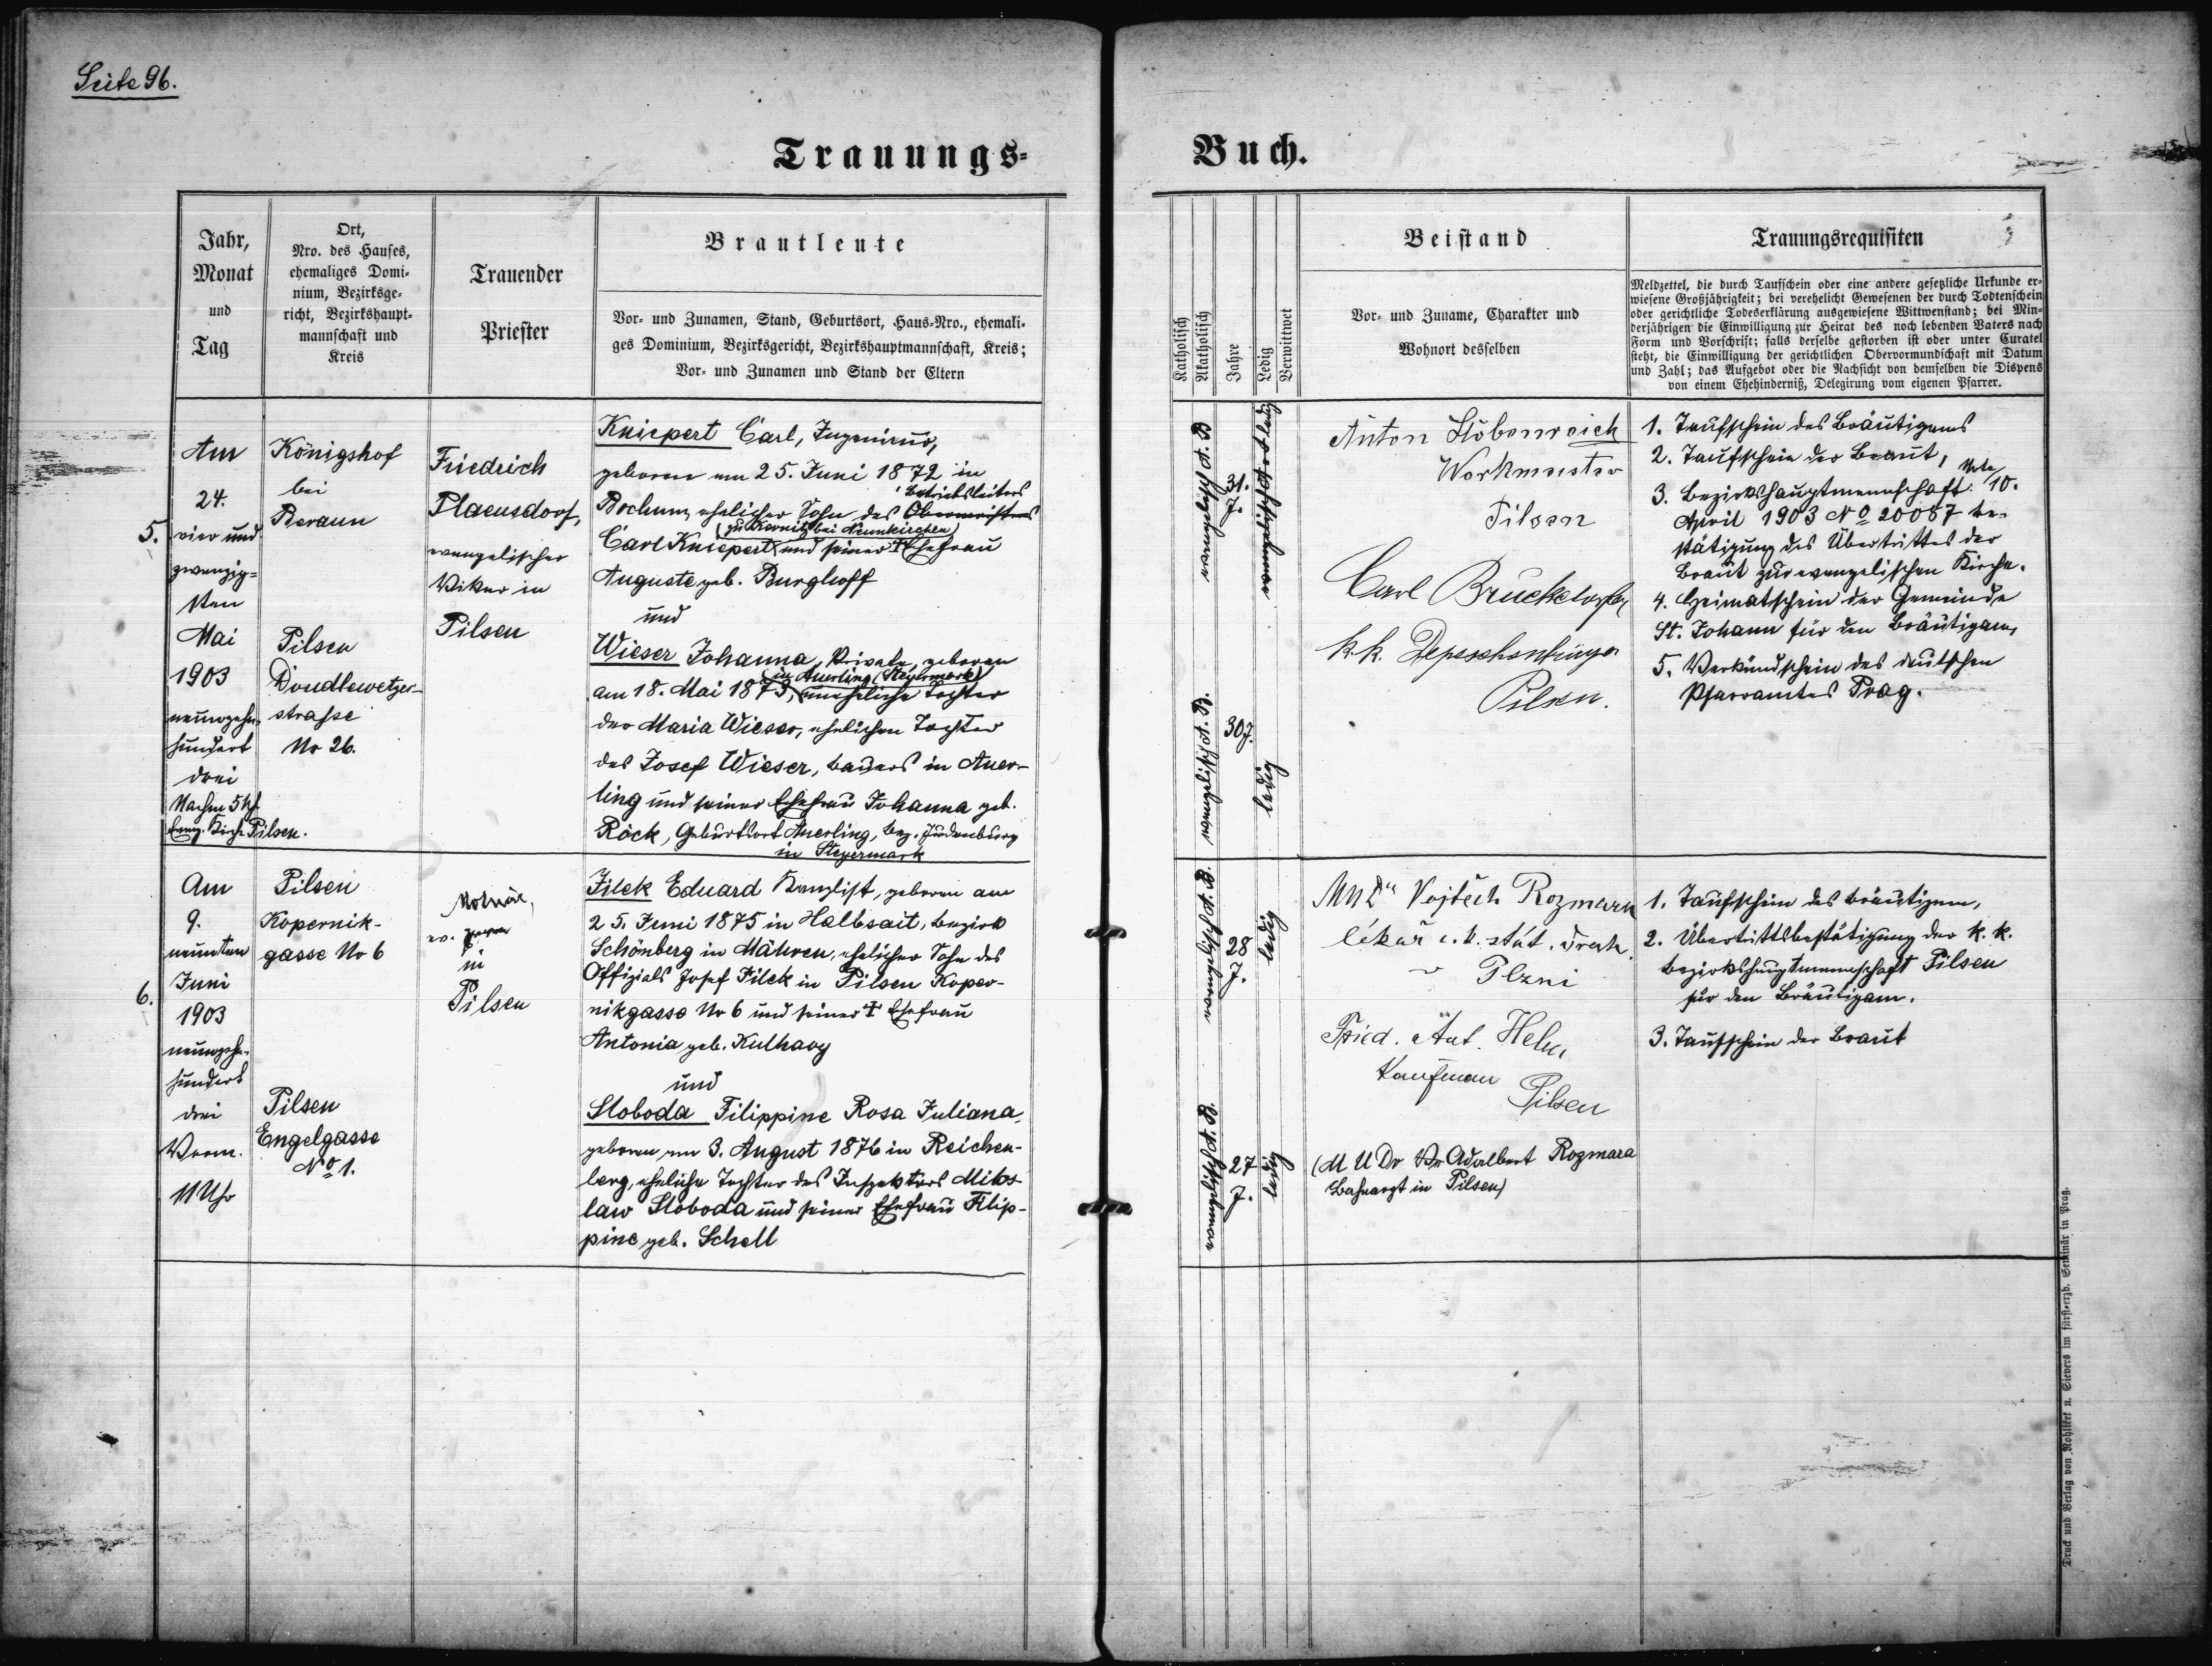 Seite 96.
Trauungs-
Buch.
Jahr,
Monat
und
Tag
Ort,
Nro. des Hauses,
ehemaliges Domi-
nium, Bezirksge-
richt, Bezirkshaupt-
mannschaft und
Kreis
Trauender
Priester
Brautleute
Vor- und Zunamen, Stand, Geburtsort, Haus-Nro., ehemali-
ges Dominium, Bezirksgericht, Bezirkshauptmannschaft, Kreis;
Vor- und Zunamen und Stand der Eltern
Katholisch
Akatholisch
Jahre
Ledig
Verwittwet
Beistand
Vor- und Zuname, Charakter und
Wohnort desselben
Trauungsrequisiten
Meldzettel, die durch Taufschein oder eine andere gesetzliche Urkunde er-
wiesene Großjährigkeit; bei verehelicht Gewesenen der durch Todtenschein
oder gerichtliche Todeserklärung ausgewiesene Wittwenstand; bei Min-
derjährigen die Einwilligung zur Heirat des noch lebenden Vaters nach
Form und Vorschrift; falls derselbe gestorben ist oder unter Curatel
steht, die Einwilligung der gerichtlichen Obervormundschaft mit Datum
und Zahl; das Aufgebot oder die Nachsicht von demselben die Dispens
von einem Ehehinderniß, Delegirung vom eigenen Pfarrer.
5.
Am
24.
vier und
zwanzig-
sten
Mai
1903
neunzehn-
hundert
drei
Nachm 5 Uhr
Evang. Kirche Pilsen.
Königshof
bei
Beraun
Pilsen
Doudlewetzer-
strasse
No 26.
Friedrich
Plaensdorf,
evangelischer
Vikar in
Pilsen
Kniepert Carl, Ingenieur,
geboren am 25. Juni 1872 in
Betriebsleiters
Bochum, ehelicher Sohn des Obermeisters
(zu Ternitz bei Neunkirchen)
Carl Kniepert und seiner † Ehefrau
Auguste geb. Burghoff
und
Wieser Johanna, Private, geboren
in Auerling (Steyermark)
am 18. Mai 1873, uneheliche Tochter
der Maria Wieser, ehelichen Tochter
des Josef Wieser, Bauers in Auer-
ling und seiner Ehefrau Johanna geb.
Röck, Geburtsort Auerling, Bez. Judenburg
in Steyermark
evangelisch A. B
31.
J.
ledig
evangelisch A. B.
30 J.
ledig
Anton Löbenreich
Werkmeister
Pilsen
Carl
k. k.
Pilsen.
1. Taufschein des Bräutigams
2. Taufschein der Braut,
3. Bezirkshauptmannschaft Note 10.
April 1903 No 20057 be-
stätigung des Übertrittes der
Braut zur evangelischen Kirche.
4. Heimatschein der Gemeinde
St. Johann für den Bräutigam,
5. Verkündschein des deutschen
Pfarramtes Prag.
6.
Am
9.
neunten
Juni
1903
neunzehn-
hundert
drei
Vorm.
11 Uhr
Pilsen
Kopernik-
gasse No 6
Pilsen
Engelgasse
No 1.
Molnár,
ev. Pfarrer
in
Pilsen
Filek Eduard Kanzlist, geboren am
25. Juni 1875 in Halbsait, Bezirk
Schönberg in Mähren, ehelicher Sohn des
Offizials Josef Filek in Pilsen Koper-
nikgasse No 6 und seiner † Ehefrau
Antonia geb. Kulhavy
und
Sloboda Filippine Rosa Juliana,
geboren am 3. August 1876 in Reichen-
berg, eheliche Tochter des Inspektors Mikos-
law Sloboda und seiner Ehefrau Filip-
pine geb. Schell
evangelisch A. B.
28
J.
ledig
evangelisch A. B.
27
J.
ledig
MUDr Vojtěch Rozmara
lékař c. k. stát. drah
v Plzni
Fried. Ant. Helm
Kaufmann
Pilsen
(MUDr Adalbert Rozmara
Bahnarzt in Pilsen)
1. Taufschein des Bräutigam,
2. Übertrittsbestätigung der k. k.
Bezirkshauptmannschaft Pilsen
für den Bräutigam.
3. Taufschein der Braut
Druck und Verlag von Rohliček u. Sievers im fürst-erzb. Seminär in Prag.